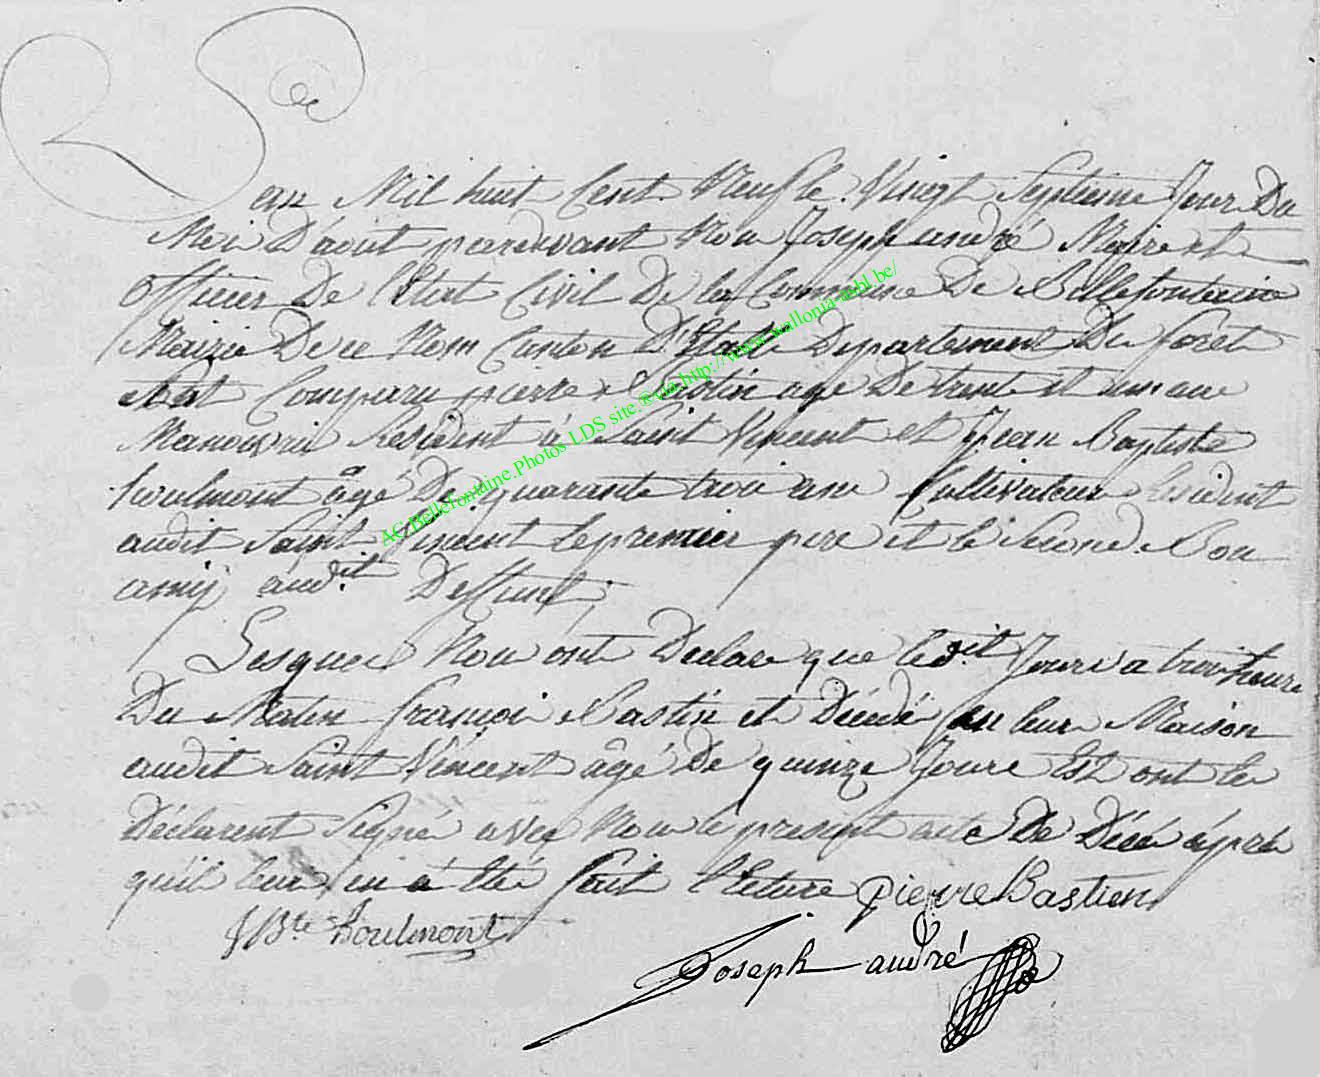 an Mil huit Cent Neuf le Vingt Septieme Jour Du
Moi D'aout pardevant Nou Joseph andré Maire et
officier De l'Etat Civil De la Commune De Bellefontaine
Mairie De ce Nom Canton D'Etalle Departement De Foret
est Comparu pierre Bastin age De trente et un an
Manouvrie Resident à Saint Vincent et Jean Baptiste
houlmont âgé De quarante troi ans Cultivateur
audit Saint Vincent le premier pere et le Second
amij audit Deffunt,
Lesquel Nou ont Declare que ledit Jours a troi heure
Du Matin françoi Bastin et Décédé en leur Maison
audit Saint Vincent âgé De quinze Jours Est ont les
Déclarent Signé avec Nou le present acte De Décé apres
quil leur en à été fait lecture Pierre Bastien
J Bte houlmont
Joseph andré
AC Bellefontaine Photos LDS site ®via http://www.wallonia-asbl.be/